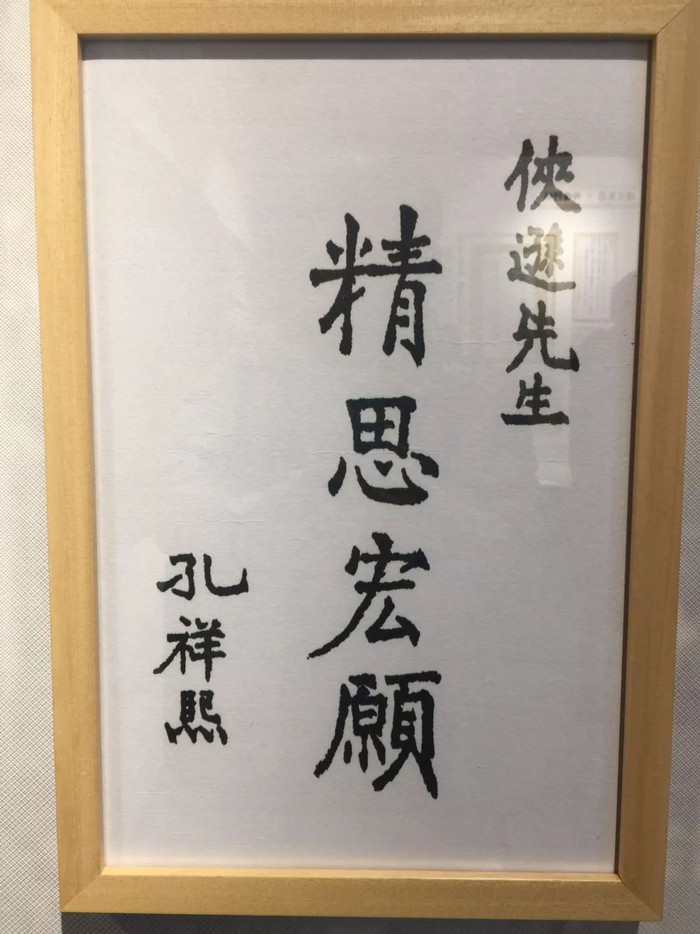 俠遜先生
精思宏願
孔祥熙